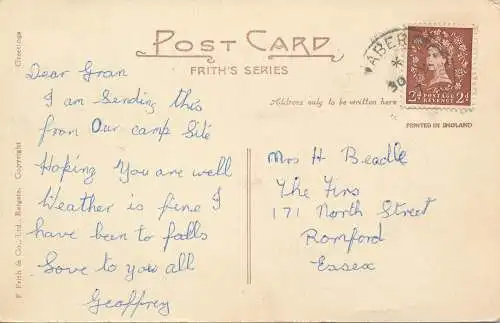 POST CARD
FRITH'S SERIES
Address only to be written here
PRINTED IN ENGLAND
Greetings
F. Frith & Co., Ltd., Reigate. Copyright
ABER
30
2d POSTAGE REVENUE 2d
Dear Gran
I am sending this
from Our camp site
Hoping you are well
Weather is fine I
have been to falls
Love to you all
Geoffrey
Mrs H Beadle
The Firs
171 North Street
Romford
Essex